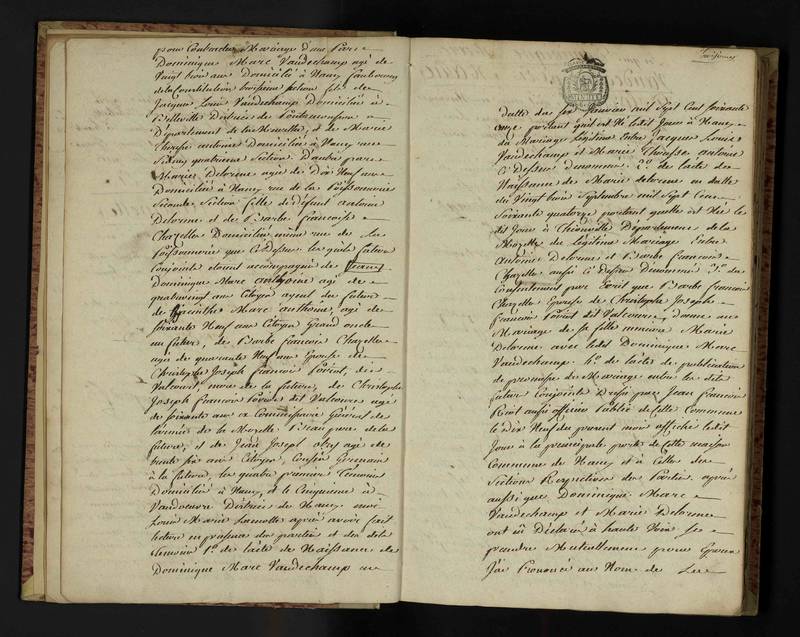 pour Contracter Mariage d'une Part
Dominique Marc Vaudechamp agé de
Vingt trois ans Domicilié à Nancy faubourg
de la Constitution troisieme section fils de
Jacque Louis Vaudechamp Domicilié à
Belleville District de Pontamousson
Département de la Meurthe, et de Marie
Therese antoine Domiciliée à Nancy rue
quatrieme Section. D'autre part
Marie Delorme agée de Dix Neuf ans
Domiciliée à Nancy rue de la Poissonnerie
Sixieme Section fille de défunt antoine
Delorme et de Barbe francoise
Chazelle Domiciliée même rue de la
Poissonnerie que Cy dessus les quels futurs
Conjoints étoient accompagnés de
Dominique Marc anthoine agé de
quatrevingt ans Citoyen ayeul du futur
de hyacinthe Marc anthoine, agé de
soixante Neuf ans Citoyen Grand oncle
au futur, de Barbe francoise Chazelle
agée de quarante Neuf ans Epouse de
Christophe Joseph francois Poirot, dit
Valcourt, mere de la future, de Christophe
Joseph Francois Poirot dit Valcourt agé
de soixante ans Commissaire Général de
l'armée de la Mozelle Beau pere de la
future, et de Jean Joseph agé de
trente six ans Citoyen, Cousin Germain
à la future, les quatre premiers témoins
Domiciliés à Nancy, et le Cinquieme à
Vandoeuvre District de Nancy moi
Louis Marie Lamotte après avoir fait
lecture en présence des parties et des dits
témoins 1.º de l'acte de Naissance de
Dominique Marc Vaudechamp en
datte du six Janvier mil Sept Cent soixante
onze portant qu'il est Né ledit Jour à Nancy
du Mariage Légitime Entre Jacque Louis
Vaudechamp et Marie Therese antoine
Cy Dessus Denommé 2.º de l'acte de
Naissance de Marie delorme en datte
du Vingt trois Septembre mil Sept Cent
Soixante quatorze portant quelle est Née le
dit Jour à Thionville Département de la
Mozelle du Légitime Mariage Entre
Antoine Delorme et Barbe Francoise
Chazelle aussi Cy Dessus Dénommés 3.º du
Consentement par Ecrit que Barbe francoise
Chazelle Epouse de Christophe Joseph
francois Poirot dit Valcourt, donne au
Mariage de sa fille mineure Marie
Delorme avec ledit Dominique Marc
Vaudechamp 4.º de l'acte de publication
de promesse de Mariage entre les dits
futurs Conjoints Dressé par Jean Francois
aussi officier Public de Cette Commune
le dix Neuf du present mois affiché ledit
Jour à la principale porte de Cette maison
Commune de Nancy et à Celle des
Sections Respectives des Parties. après
aussi que Dominique Marc
Vaudechamp et Marie Delorme
ont eu Déclaré à haute Voix se
prendre Mutuellement pour Epoux
J'ai Prononcé au Nom de La